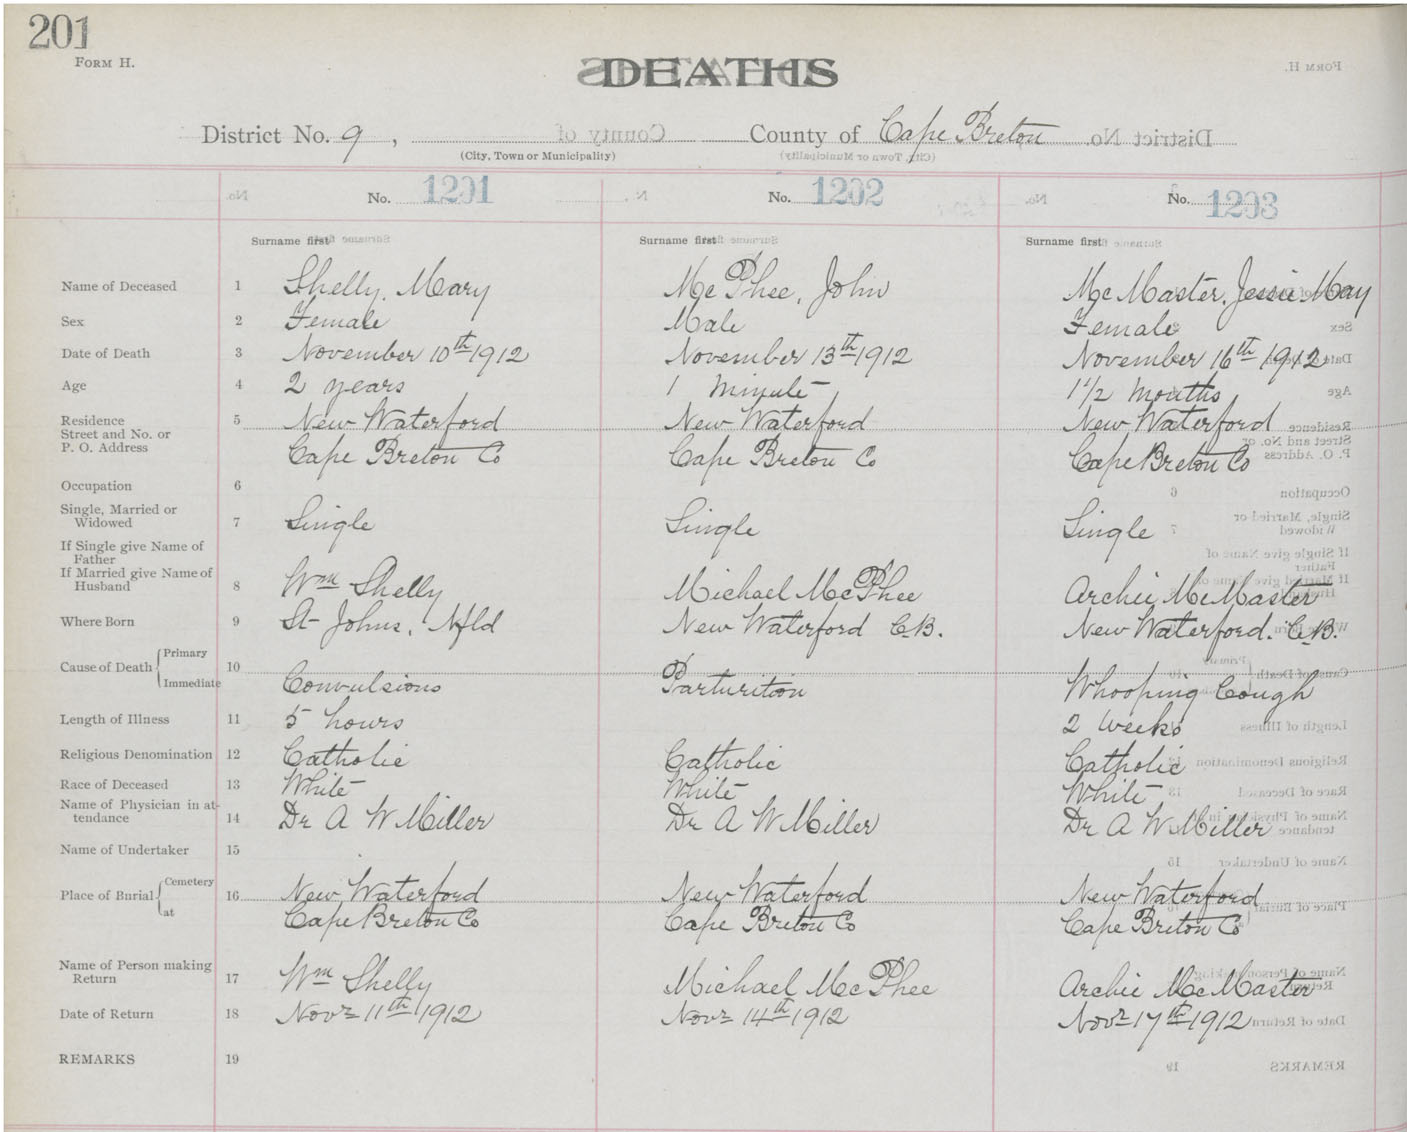 201
FORM H.
DEATHS
District No. 9, County of Cape Breton
(City, Town or Municipality)
No. 1201 No. 1202 No. 1203
Surname first Surname first Surname first
Name of Deceased 1 Shelly, Mary Mc Phee, John Mc Master, Jessie May
Sex 2 Female Male Female
Date of Death 3 November 10th 1912 November 13th 1912 November 16th 1912
Age 4 2 years 1 minute 1 1/2 Months
Residence 5 New Waterford New Waterford New Waterford
Street and No. or
P. O. Address Cape Breton Co Cape Breton Co Cape Breton Co
Occupation 6
Single, Married or
Widowed 7 Single Single Single
If Single give Name of
Father
If Married give Name of
Husband 8 Wm Shelly Michael McPhee Archie McMaster
Where Born 9 St Johns, Nfld New Waterford C.B. New Waterford. C.B.
Cause of Death Primary 10
Immediate Convulsions Parturition Whooping Cough
Length of Illness 11 5 hours 2 weeks
Religious Denomination 12 Catholic Catholic Catholic
Race of Deceased 13 White White White
Name of Physician in at-
tendance 14 Dr A W Miller Dr A W Miller Dr A W Miller
Name of Undertaker 15
Place of Burial Cemetery 16 New Waterford New Waterford New Waterford
at Cape Breton Co Cape Breton Co Cape Breton Co
Name of Person making
Return 17 Wm Shelly Michael McPhee Archie McMaster
Date of Return 18 Novr 11th 1912 Novr 14th 1912 Novr 17th 1912
REMARKS 19